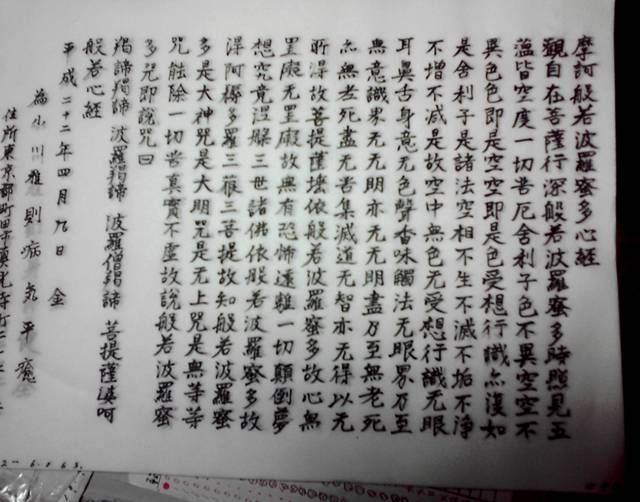 摩訶般若波羅蜜多心経
觀自在菩薩行深般若波羅蜜多時照見五
蘊皆空度一切苦厄舍利子色不異空空不
異色色即是空空即是色受想行識亦復如
是舍利子是諸法空相不生不滅不垢不浄
不増不減是故空中無色无受想行識无眼
耳鼻舌身意无色聲香味觸法无眼界乃至
無意識界无无明亦无无明盡乃至無老死
亦無老死盡无苦集滅道无智亦无得以无
所得故菩提薩埵依般若波羅蜜多故心無
罣礙无罣礙故無有恐怖遠離一切顛倒夢
想究竟涅槃三世諸佛依般若波羅蜜多故
得阿耨多羅三藐三菩提故知般若波羅蜜
多是大神咒是大明咒是无上咒是無等等
咒能除一切苦真實不虚故説般若波羅蜜
多咒即説咒曰
羯諦羯諦 波羅羯諦 波羅僧羯諦 菩提薩婆呵
般若心経
平成二十二年四月九日 金
為小川雅則病気平癒
住所東京都町田市